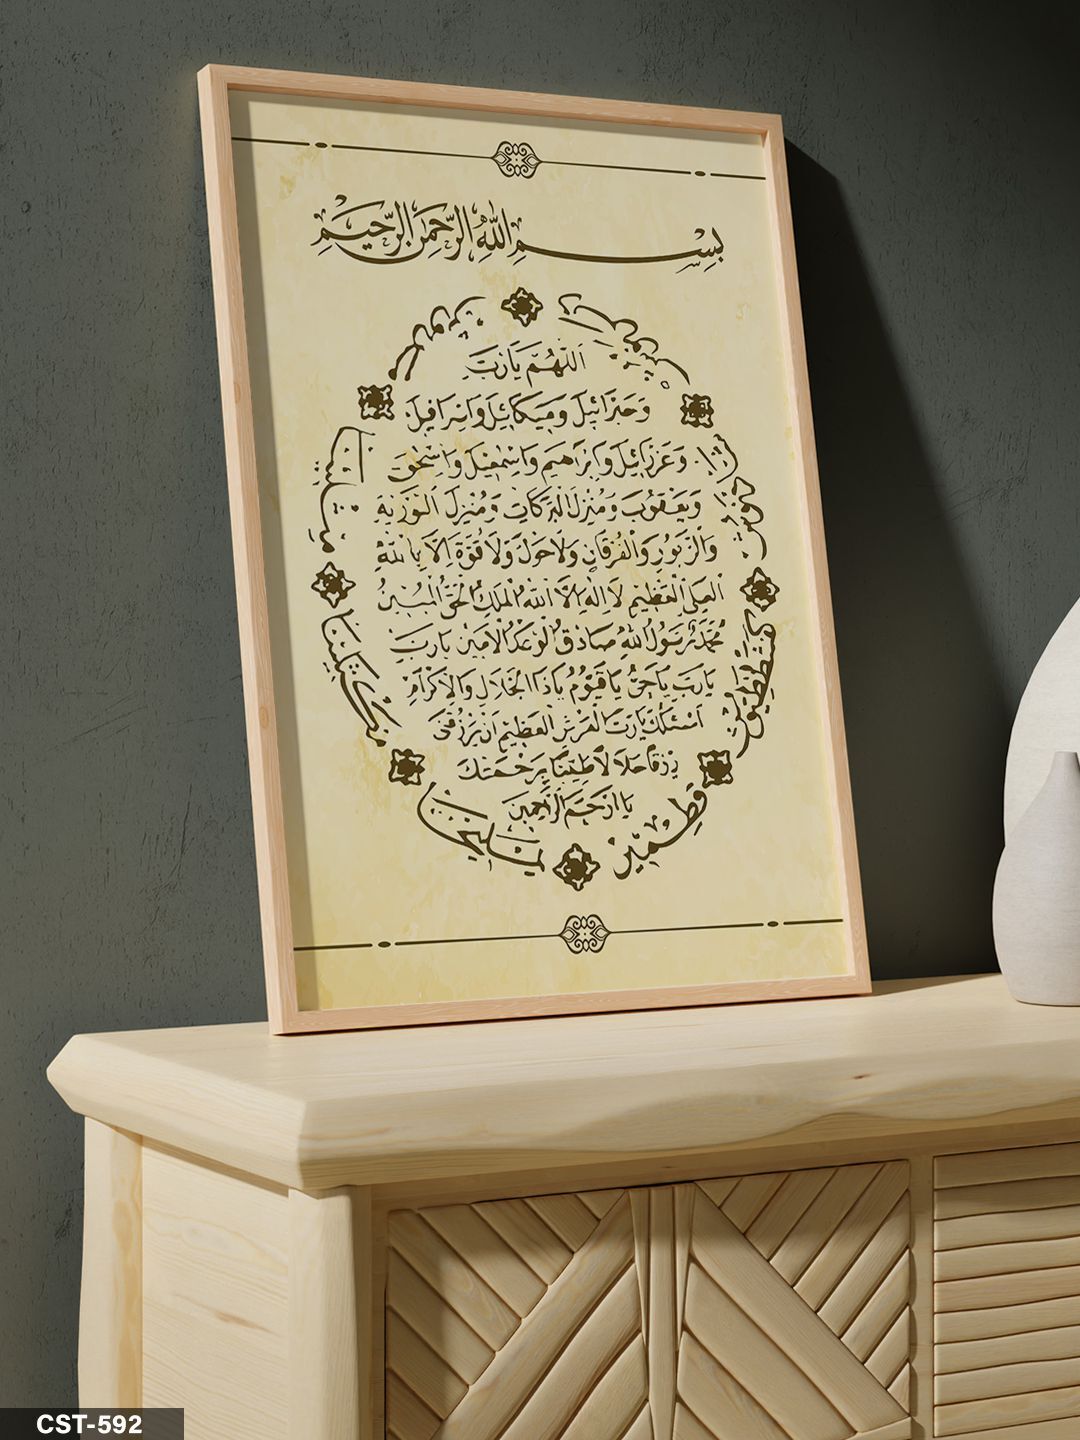 بِسْمِ اللّٰهِ الرَّحْمٰنِ الرَّحِيمِ
اَللّٰهُمَّ يَارَبَّ
وَجَبْرَائِيلَ وَمِيكَائِيلَ وَاِسْرَافِيلَ
وَعَزْرَائِيلَ وَاِبْرَاهِيمَ وَاِسْمٰعِيلَ وَاِسْحٰقَ
وَيَعْقُوبَ وَمُنْزِلَ الْبَرَكَاتِ وَمُنْزِلَ التَّوْرٰيةِ
وَالزَّبُورِ وَالْفُرْقَانِ وَلَا حَوْلَ وَلَا قُوَّةَ اِلَّا بِاللّٰهِ
الْعَلِىِّ الْعَظِيمِ لَا اِلٰهَ اِلَّا اللّٰهُ الْمَلِكُ الْحَقُّ الْمُبِينُ
مُحَمَّدٌ رَسُولُ اللّٰهِ صَادِقُ الْوَعْدِ الْاَمِينِ يَارَبِّ
يَارَبِّ يَاحَىُّ يَاقَيُّومُ يَاذَا الْجَلَالِ وَالْاِكْرَامِ
اَسْئَلُكَ يَارَبَّ الْعَرْشِ الْعَظِيمِ اَنْ يَرْزُقَنِى
رِزْقًا حَلَالًا طَيِّبًا بِرَحْمَتِكَ
يَا اَرْحَمَ الرَّاحِمِينَ
كفشططيوش
قطمير
يمليخا
مكثلينا
مثلينا
CST-592